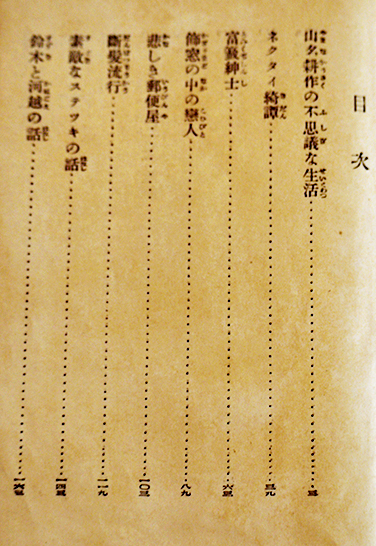 目次
山名耕作の不思議な生活……三
ネクタイ綺譚……三九
富籤紳士……六三
飾窓の中の戀人……八九
悲しき郵便屋……一〇三
斷髮流行……一一九
素敵なステツキの話……一四三
鈴木と河越の話……